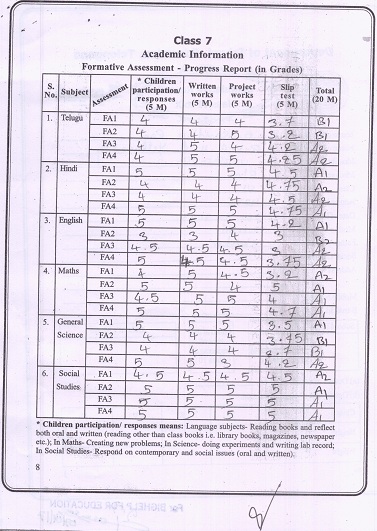 Class 7
Academic Information
Formative Assessment - Progress Report (in Grades)
S. No. Subject Assessment * Children participation/ responses (5 M) Written works (5 M) Project works (5 M) Slip test (5 M) Total (20 M)
1. Telugu FA1 4 4 4 3.7 B1
FA2 4 4 5 3.2 B1
FA3 4 5 4 4.2 A2
FA4 4 5 5 4.25 A2
2. Hindi FA1 5 5 5 4.5 A1
FA2 4 4 4 4.75 A2
FA3 4 4 4 4.5 A2
FA4 5 5 5 4.75 A1
3. English FA1 5 5 5 4.2 A1
FA2 3 3 4 3 B2
FA3 4.5 4.5 4.5 3 A2
FA4 5 4.5 4.5 3.75 A2
4. Maths FA1 4 5 4.5 3.2 A2
FA2 5 5 4 5 A1
FA3 4.5 5 5 4 A1
FA4 5 5 5 4.7 A1
5. General Science FA1 5 5 5 3.5 A1
FA2 4 4 4 3.75 B1
FA3 4 4 4 3.7 B1
FA4 5 5 3 4.2 A2
6. Social Studies FA1 4.5 4.5 4.5 4.5 A2
FA2 5 5 5 5 A1
FA3 5 5 5 5 A1
FA4 5 5 5 5 A1
* Children participation/ responses means: Language subjects- Reading books and reflect
both oral and written (reading other than class books i.e. library books, magazines, newspaper
etc.); In Maths- Creating new problems; In Science- doing experiments and writing lab record;
In Social Studies- Respond on contemporary and social issues (oral and written).
8